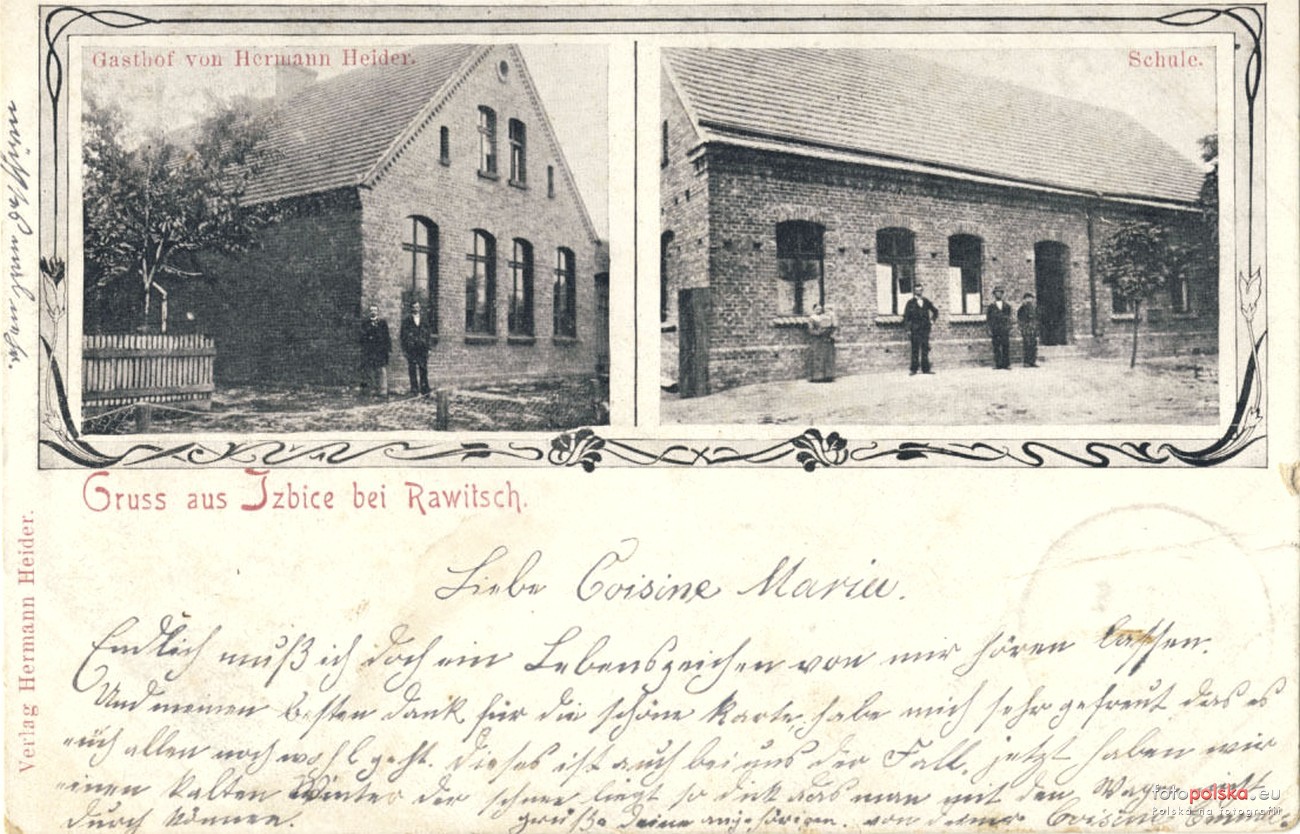 Gasthof von Hermann Heider.
Schule.
Gruss aus Izbice bei Rawitsch.
Verlag Hermann Heider.
Liebe Coisine Marie.
Endlich muß ich doch ein Lebenszeichen von mir hören lassen.
Und meinen besten dank für die schöne Karte, habe mich sehr gefreut das es
euch allen noch wohl geht. dieses ist auch bei uns der Fall, jetzt haben wir
einen kalten Winter der schnee liegt so dick das man mit den Wagen nicht
durch können. grüße deine angehörigen. von deiner Coisine
fotopolska.eu
polska na fotografii